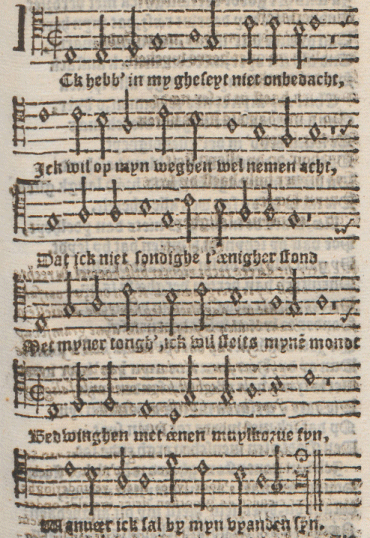 Ck hebb' in my gheseyt niet onbedacht,
Ick wil op myn weghen wel nemen acht,
Dat ick niet sondighe t'ænigher stond
Met myner tongh', ick wil steits mynē mondt
Bedwinghen met ænen muylkorue fyn,
Wanneer ick sal by myn vyanden syn.